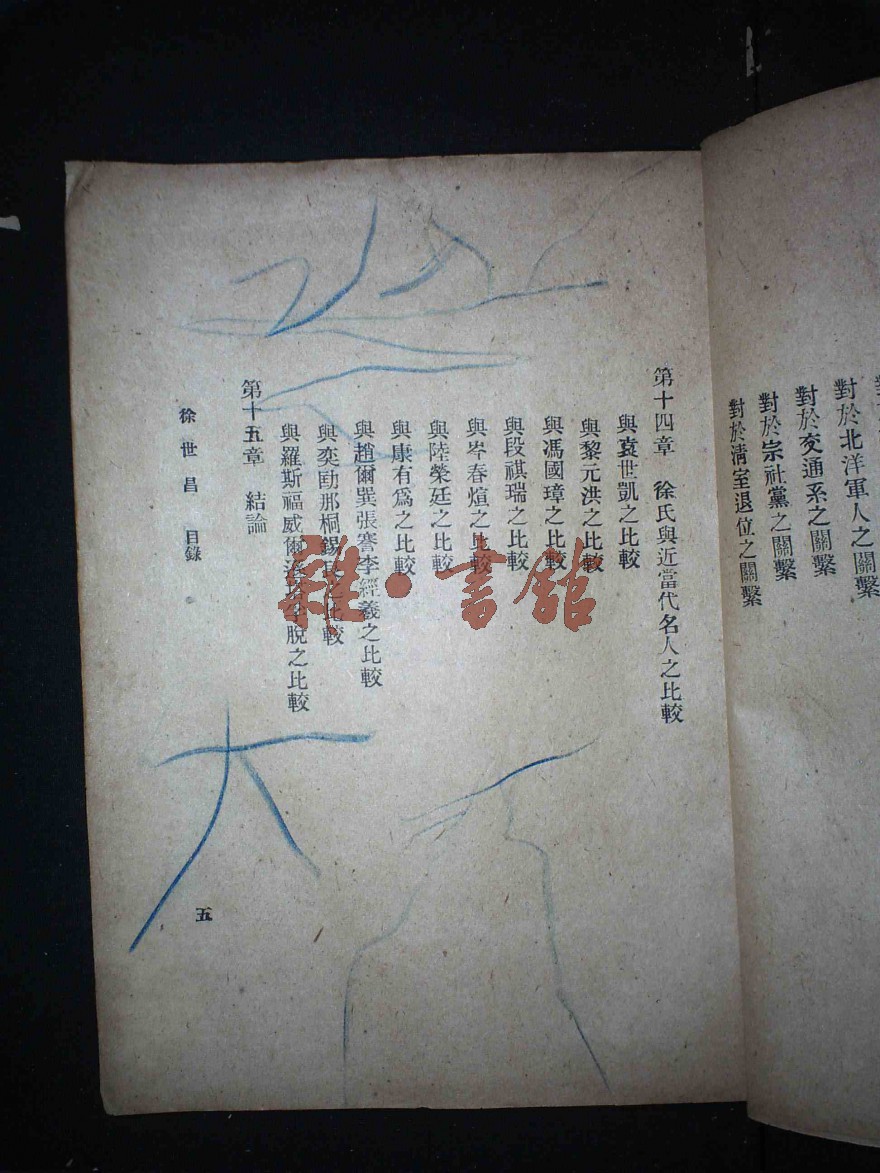 對於北洋軍人之關繫
對於交通系之關繫
對於宗社黨之關繫
對於清室退位之關繫
第十四章 徐氏與近當代名人之比較
與袁世凱之比較
與黎元洪之比較
與馮國璋之比較
與段祺瑞之比較
與岑春煊之比較
與陸榮廷之比較
與康有爲之比較
與趙爾巽張謇李經羲之比較
與奕劻那桐錫良之比較
與羅斯福威爾 脫之比較
第十五章 結論
徐世昌 目錄
五
雜·書館